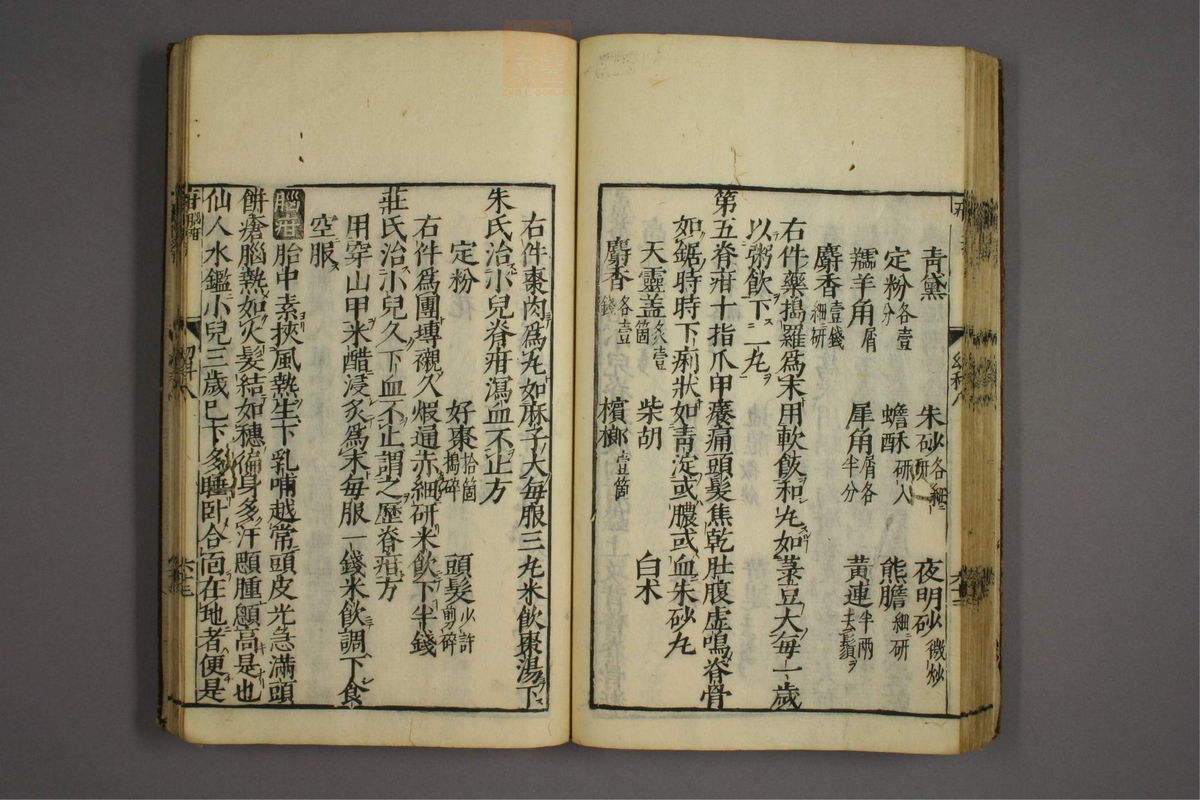 青黛　朱砂各細研　夜明砂微炒
定粉各壹分　蟾酥研入　熊膽細研
羚羊角屑　犀角屑各半分　黄連半兩去鬚
麝香壹錢細研
右件藥搗羅爲末用軟飯和丸如菉豆大每一歲
以粥飲下二丸
第五脊疳十指爪甲癢痛頭髮焦乾肚腹虚鳴脊骨
如鋸時時下痢狀如青淀或膿或血朱砂丸
天靈盖炙壹箇　柴胡　白术
麝香各壹錢　檳榔壹箇
右件棗肉爲丸如麻子大每服三丸米飲棗湯下
朱氏治小兒脊疳瀉血不止方
定粉　好棗拾箇搗碎　頭髮少許剪碎
右件爲團摶襯久煅通赤細研米飲下半錢
莊氏治小兒久下血不止謂之歷脊疳方
用穿山甲米醋浸炙爲末每服一錢米飲調下食
空服
腦疳胎中素挾風熱生下乳哺越常頭皮光急滿頭
餅瘡腦熱如火髮結如穗徧身多汗顋腫顖高是也
仙人水鑑小兒三歲已下多睡卧合面在地者便是